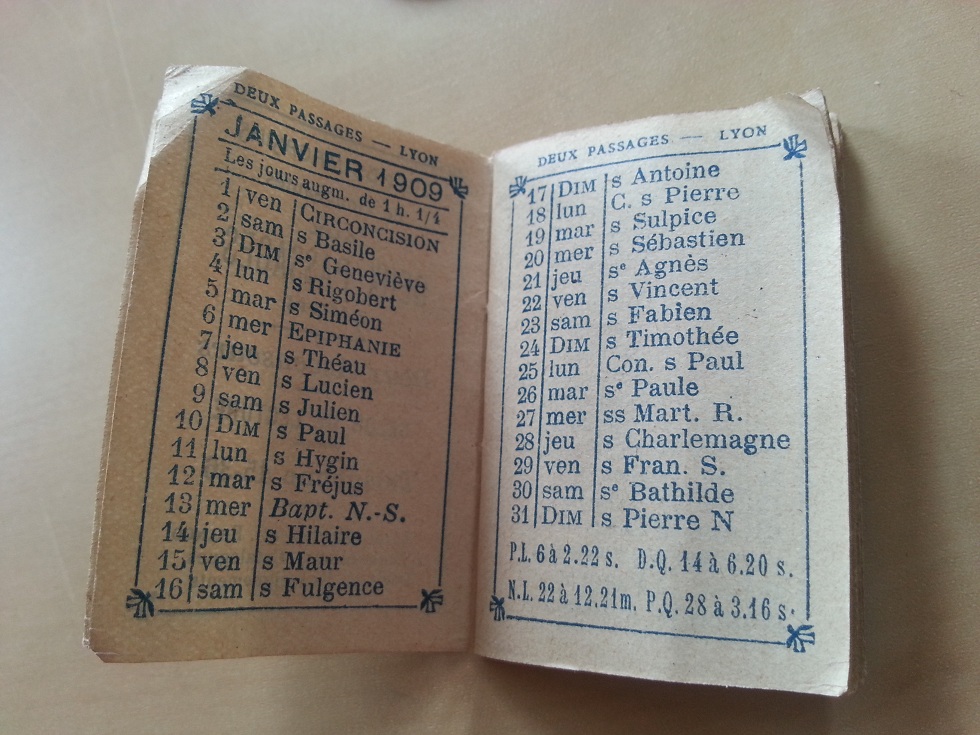 DEUX PASSAGES — LYON
JANVIER 1909
Les jours augm. de 1 h. 1/4
1 ven CIRCONCISION
2 sam s Basile
3 DIM sᵉ Geneviève
4 lun s Rigobert
5 mar s Siméon
6 mer EPIPHANIE
7 jeu s Théau
8 ven s Lucien
9 sam s Julien
10 DIM s Paul
11 lun s Hygin
12 mar s Fréjus
13 mer Bapt. N.-S.
14 jeu s Hilaire
15 ven s Maur
16 sam s Fulgence
DEUX PASSAGES — LYON
17 DIM s Antoine
18 lun C. s Pierre
19 mar s Sulpice
20 mer s Sébastien
21 jeu sᵉ Agnès
22 ven s Vincent
23 sam s Fabien
24 DIM s Timothée
25 lun Con. s Paul
26 mar sᵉ Paule
27 mer ss Mart. R.
28 jeu s Charlemagne
29 ven s Fran. S.
30 sam sᵉ Bathilde
31 DIM s Pierre N
P.L. 6 à 2.22 s. D.Q. 14 à 6.20 s.
N.L. 22 à 12.21m. P.Q. 28 à 3.16 s.